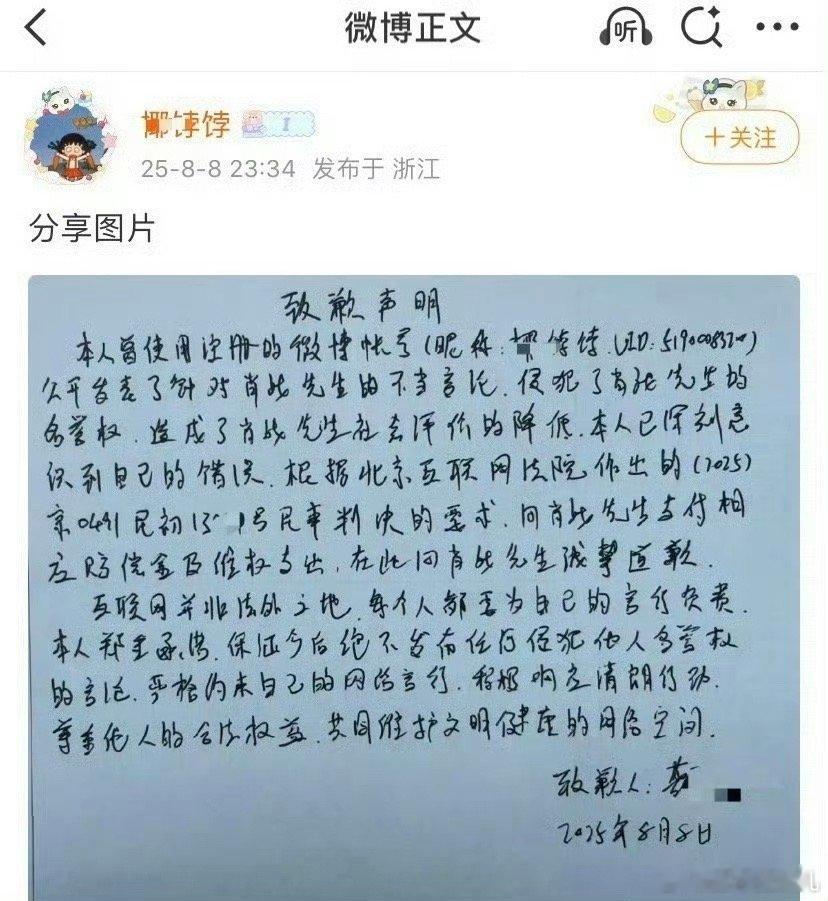 微博正文
听
饽饽
25-8-8 23:34 发布于 浙江
+关注
分享图片
致歉声明
本人曾使用注册的微博帐号(昵称: 饽饽.UID:5190008320)
公开发表了针对肖战先生的不当言论.侵犯了肖战先生的
名誉权.造成了肖战先生社会评价的降低.本人已深刻意
识到自己的错误.根据北京互联网法院作出的(2025)
京0491民初13 1号民事判决的要求.向肖战先生支付相
应赔偿金及维权支出,在此向肖战先生诚挚道歉.
互联网并非法外之地.每个人都要为自己的言行负责.
本人郑重承诺.保证今后绝不发布任何侵犯他人名誉权
的言论.严格约束自己的网络言行.积极响应清朗行动.
尊重他人的合法权益.共同维护文明健康的网络空间.
致歉人:
2025年8月8日